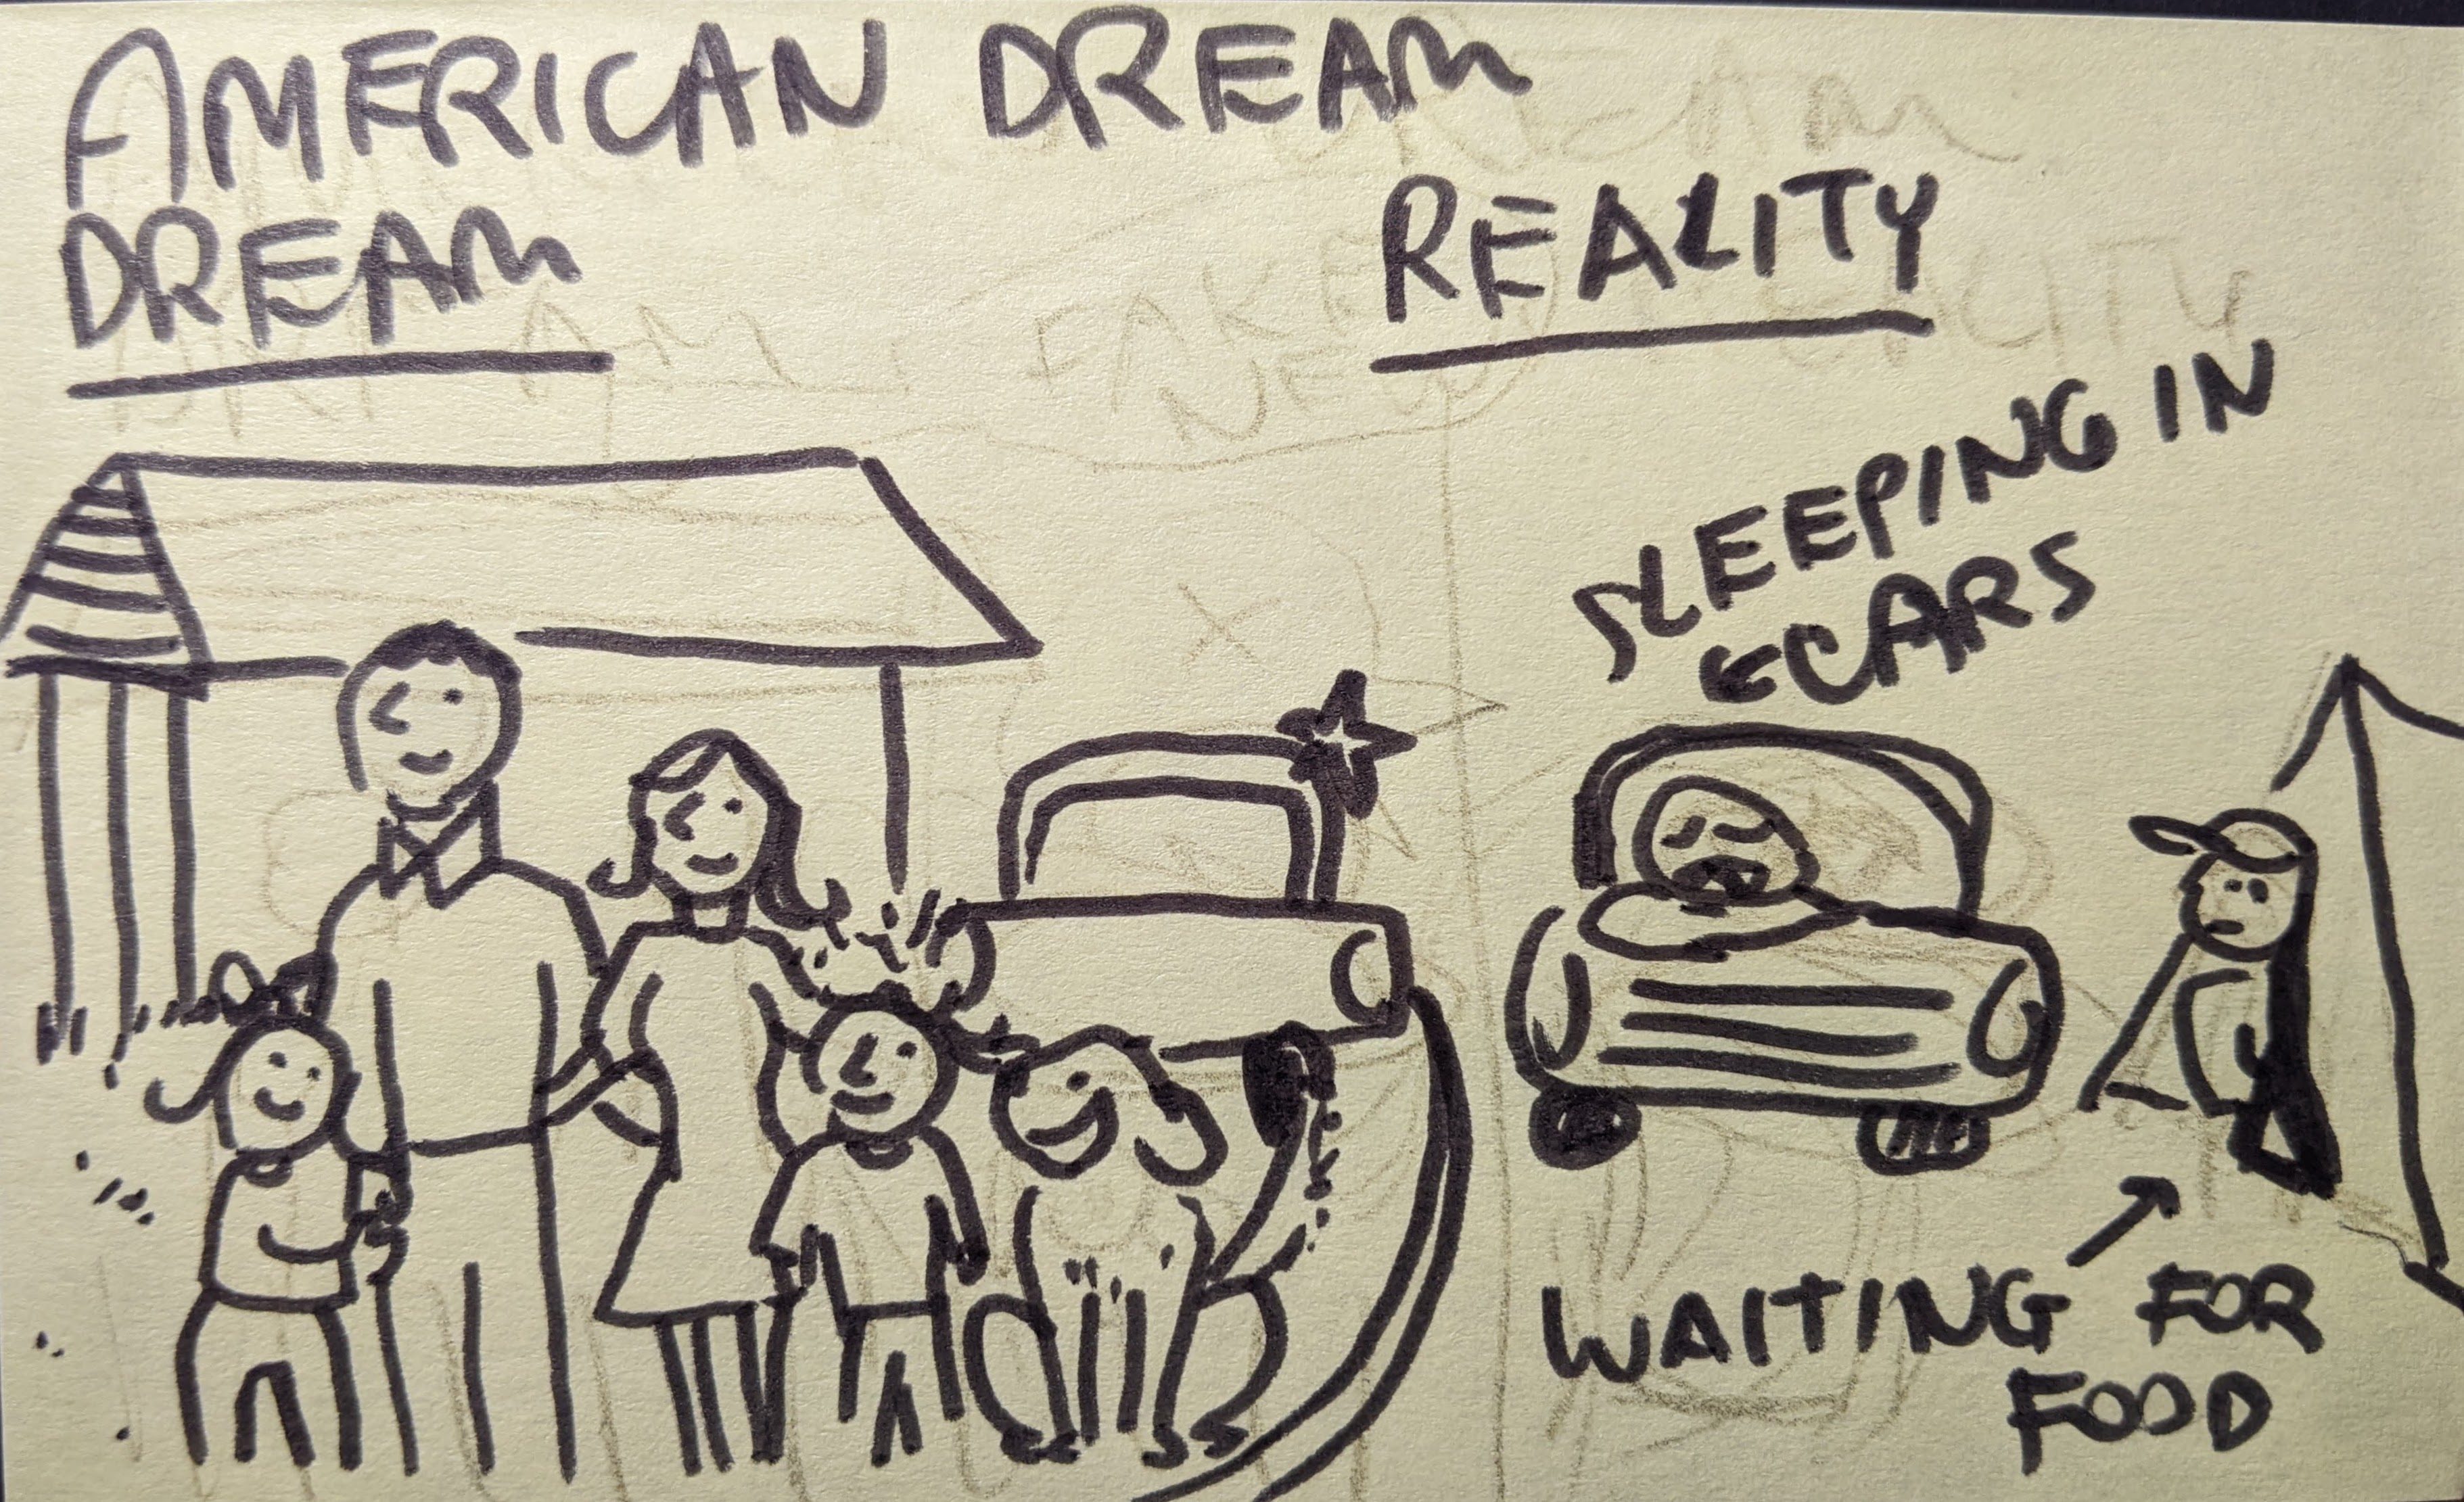 AMERICAN DREAM
DREAM
REALITY
FAKE
SLEEPING IN
CARS
WAITING FOR
FOOD